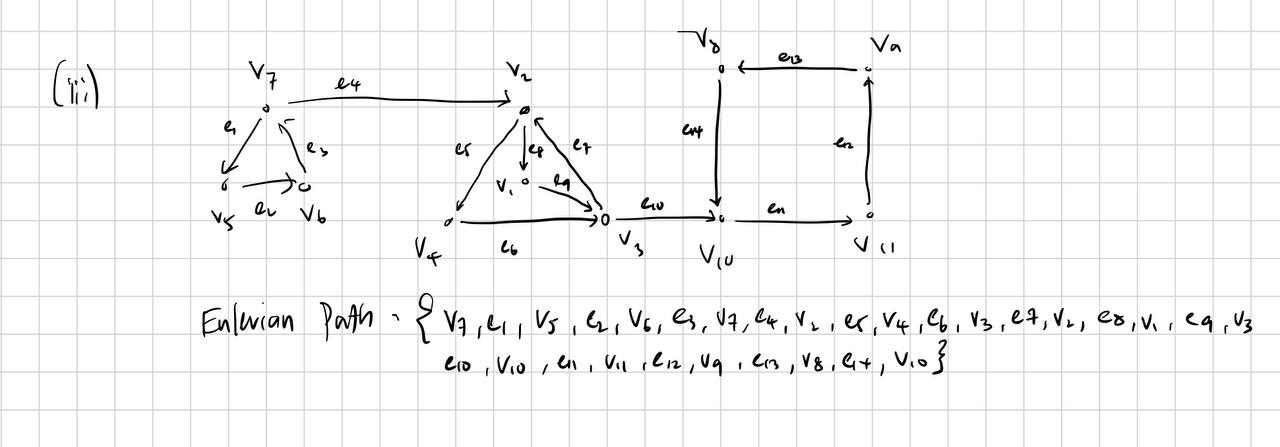 (iii)
V7 e4 V2 V8 e13 V9
e1 e3 e5 e8 e7 e14 e12
V5 e2 V6 V1 e9 e10 e11
V4 e6 V3 V10 V11
Eulerian Path = { V7, e1, V5, e2, V6, e3, V7, e4, V2, e5, V4, e6, V3, e7, V2, e8, V1, e9, V3
e10, V10, e11, V11, e12, V9, e13, V8, e14, V10 }